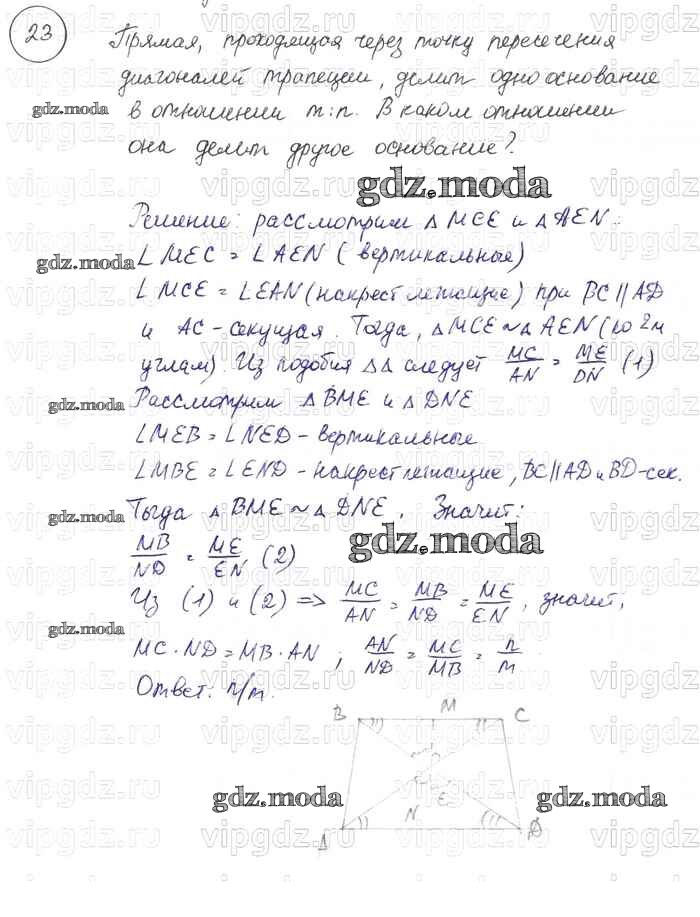 23
Прямая, проходящая через точку пересечения
диагоналей трапеции, делит одно основание
gdz.moda
в отношении m:n. В каком отношении
она делит другое основание?
gdz.moda
Решение: рассмотрим △ MCE и △ AEN:
gdz.moda
∠ MEC = ∠ AEN (вертикальные)
∠ MCE = ∠ EAN (накрест лежащие) при BC || AD
и AC-секущая. Тогда, △ MCE ~ △ AEN (по 2м
углам). Из подобия △△ следует MC/AN = ME/DN (1)
gdz.moda
Рассмотрим △ BME и △ DNE
∠MEB = ∠NED - вертикальные
∠MBE = ∠END - накрест лежащие, BC||AD и BD-сек.
gdz.moda
Тогда △ BME ~ △ DNE. Значит:
MB/ND = ME/EN (2)
gdz.moda
Из (1) и (2) => MC/AN = MB/ND = ME/EN, значит,
gdz.moda
MC · ND = MB · AN ; AN/ND = MC/MB = n/m
Ответ: n/m.
B M C
E
gdz.moda
gdz.moda
N
A D
vipgdz.ru